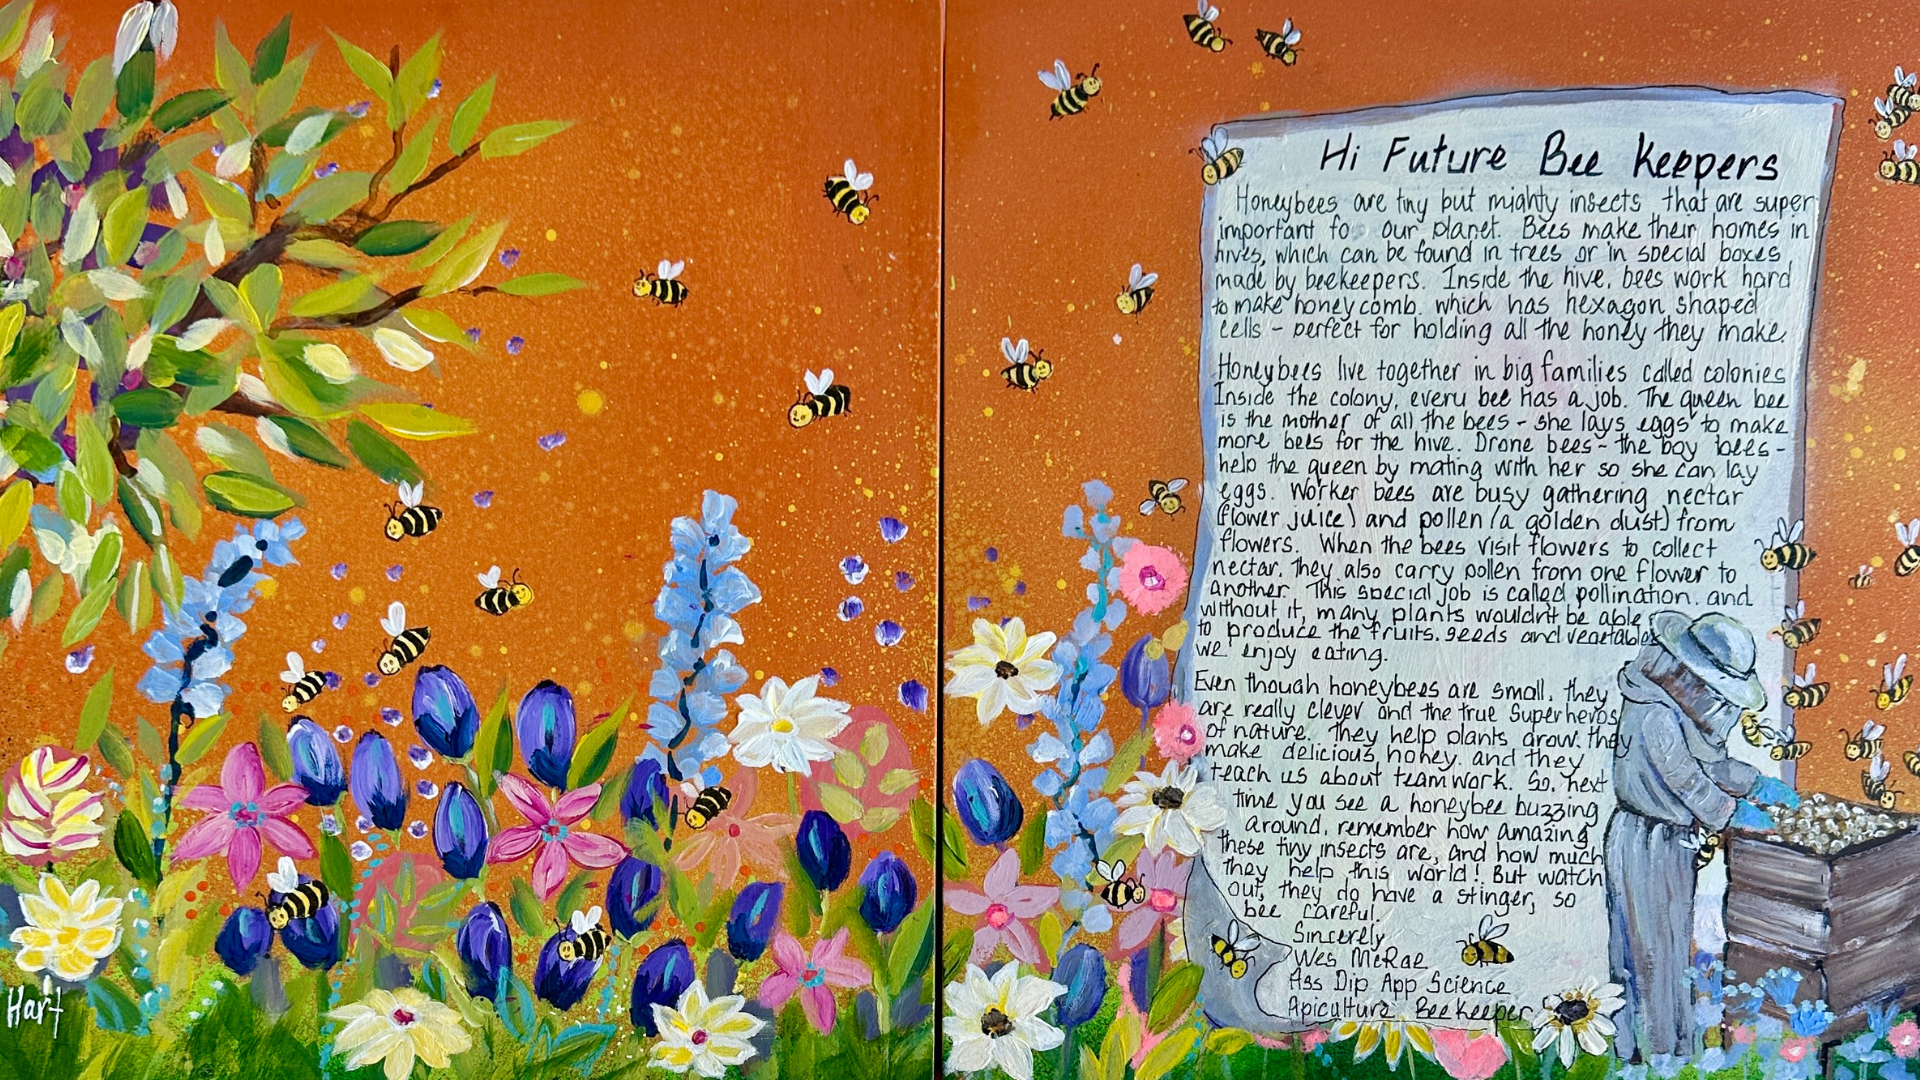 Hi Future Bee Keepers
Honeybees are tiny but mighty insects that are super
important fo our planet. Bees make their homes in
hives, which can be found in trees or in special boxes
made by beekeepers. Inside the hive, bees work hard
to make honeycomb. which has hexagon shaped
cells - perfect for holding all the honey they make.
Honeybees live together in big families called colonies
Inside the colony, every bee has a job. The queen bee
is the mother of all the bees - she lays eggs to make
more bees for the hive. Drone bees - the boy bees -
help the queen by mating with her so she can lay
eggs. Worker bees are busy gathering nectar
(flower juice) and pollen (a golden dust) from
flowers. When the bees visit flowers to collect
nectar. they also carry pollen from one flower to
another. This special job is called pollination. and
without it, many plants wouldn't be able
to produce the fruits. seeds and vegetables
we enjoy eating.
Even though honeybees are small, they
are really clever and the true Superheros
of nature. They help plants grow. they
make delicious honey. and they
teach us about teamwork. So, next
time you see a honeybee buzzing
around, remember how amazing
these tiny insects are, and how much
they help this world! But watch
out, they do have a stinger, so
bee careful.
Sincerely
Wes McRae
Ass Dip App Science
Apiculture Beekeeper
Hart